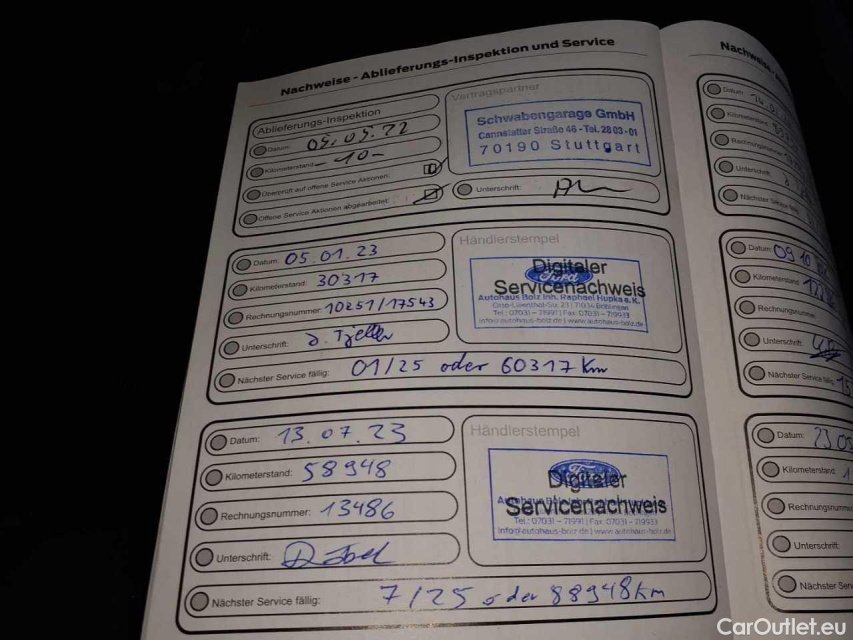 Nachweise - Ablieferungs-Inspektion und Service
Ablieferungs-Inspektion
Datum: 05.05.22
Kilometerstand: -10-
Überprüft auf offene Service Aktionen:
Offene Service Aktionen abgearbeitet:
Vertragspartner
Schwabengarage GmbH
Cannstatter Straße 46 - Tel. 28 03 - 01
70190 Stuttgart
Unterschrift:
Datum: 05.01.23
Kilometerstand: 30317
Rechnungsnummer: 10251/17543
Unterschrift:
Nächster Service fällig: 01/25 oder 60317 Km
Händlerstempel
Digitaler
Ford
Servicenachweis
Autohaus Bolz Inh. Raphael Hupka e.K.
Otto-Lilienthal-Str. 23 | 71034 Böblingen
Tel.: 07031 - 71991 | Fax: 07031 - 719933
info@autohaus-bolz.de | www.autohaus-bolz.de
Datum: 13.07.23
Kilometerstand: 58948
Rechnungsnummer: 13486
Unterschrift:
Nächster Service fällig: 7/25 oder 88948km
Händlerstempel
Ford
Digitaler
Servicenachweis
Tel.: 07031 - 71991 | Fax: 07031 - 719933
info@autohaus-bolz.de | www.autohaus-bolz.de
Nachweise -
Datum:
Kilometerstand:
Rechnungsnummer:
Unterschrift:
Nächster Service
Datum: 09.10
Kilometerstand:
Rechnungsnummer:
Unterschrift:
Nächster Service fällig:
Datum: 23.0
Kilometerstand:
Rechnungsnummer
Unterschrift:
Nächster Service
CarOutlet.eu